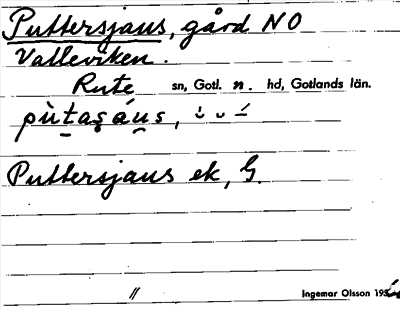 Puttersjaus, gård NO
Valleviken.
Rute sn, Gotl. n. hd, Gotlands län.
pùtaşáu̯s,
Puttersjaus ek, G.
//
Ingemar Olsson 195